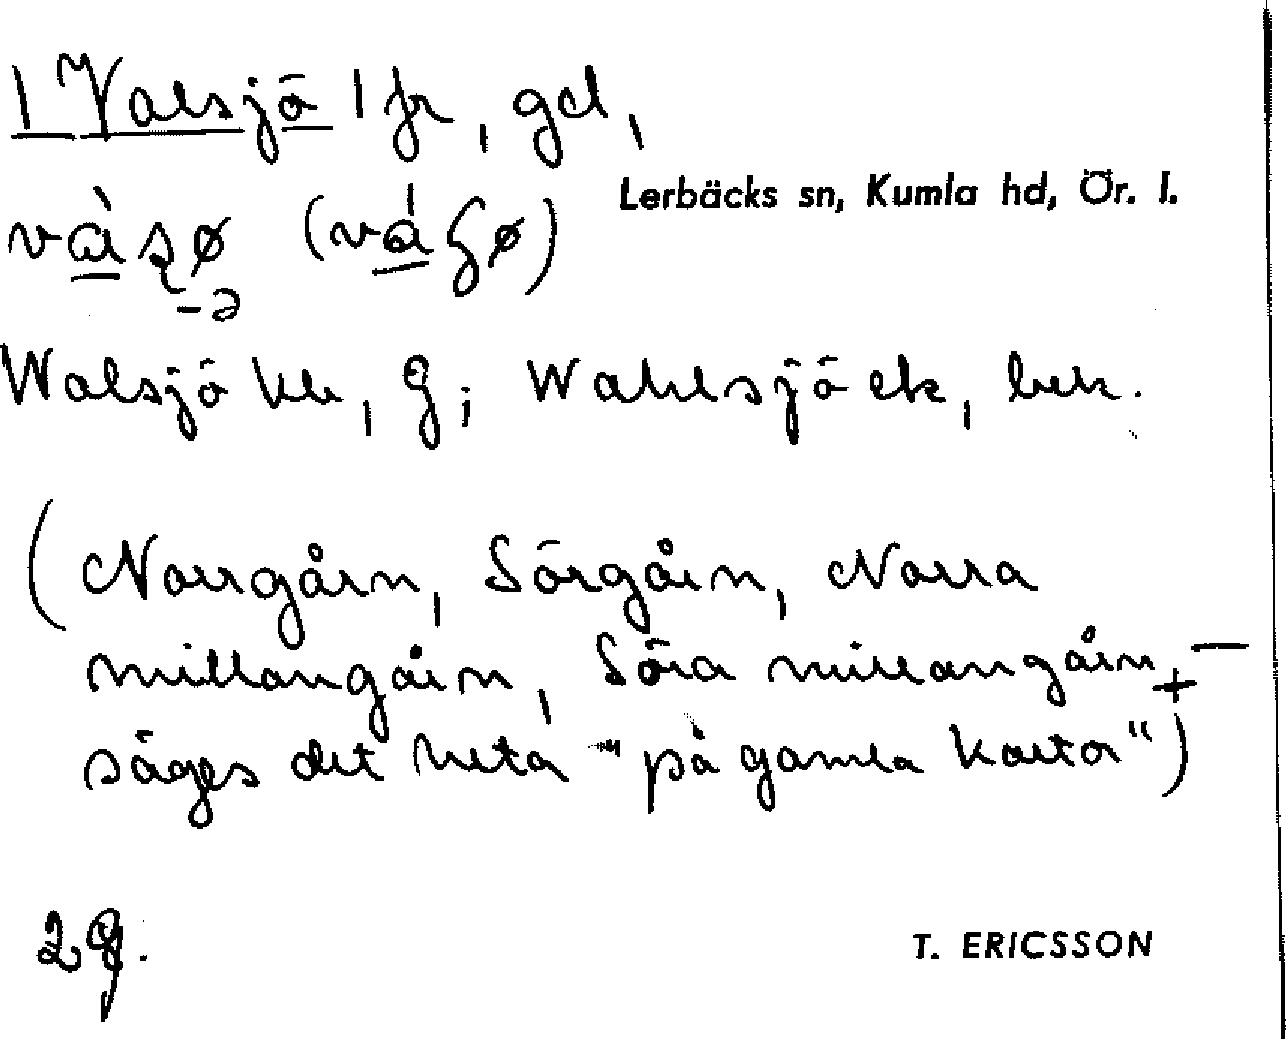 | Valsjö | fr, gd,
Lerbäcks sn, Kumla hd, Ör. l.
Walsjö kb, g; Wahlsjö ek, bek.
(Norrgårn, Sörgårn, Norra
millangårn, Söra millangårn, —
säges det heta "på gamla kartor")
2 g.
T. ERICSSON